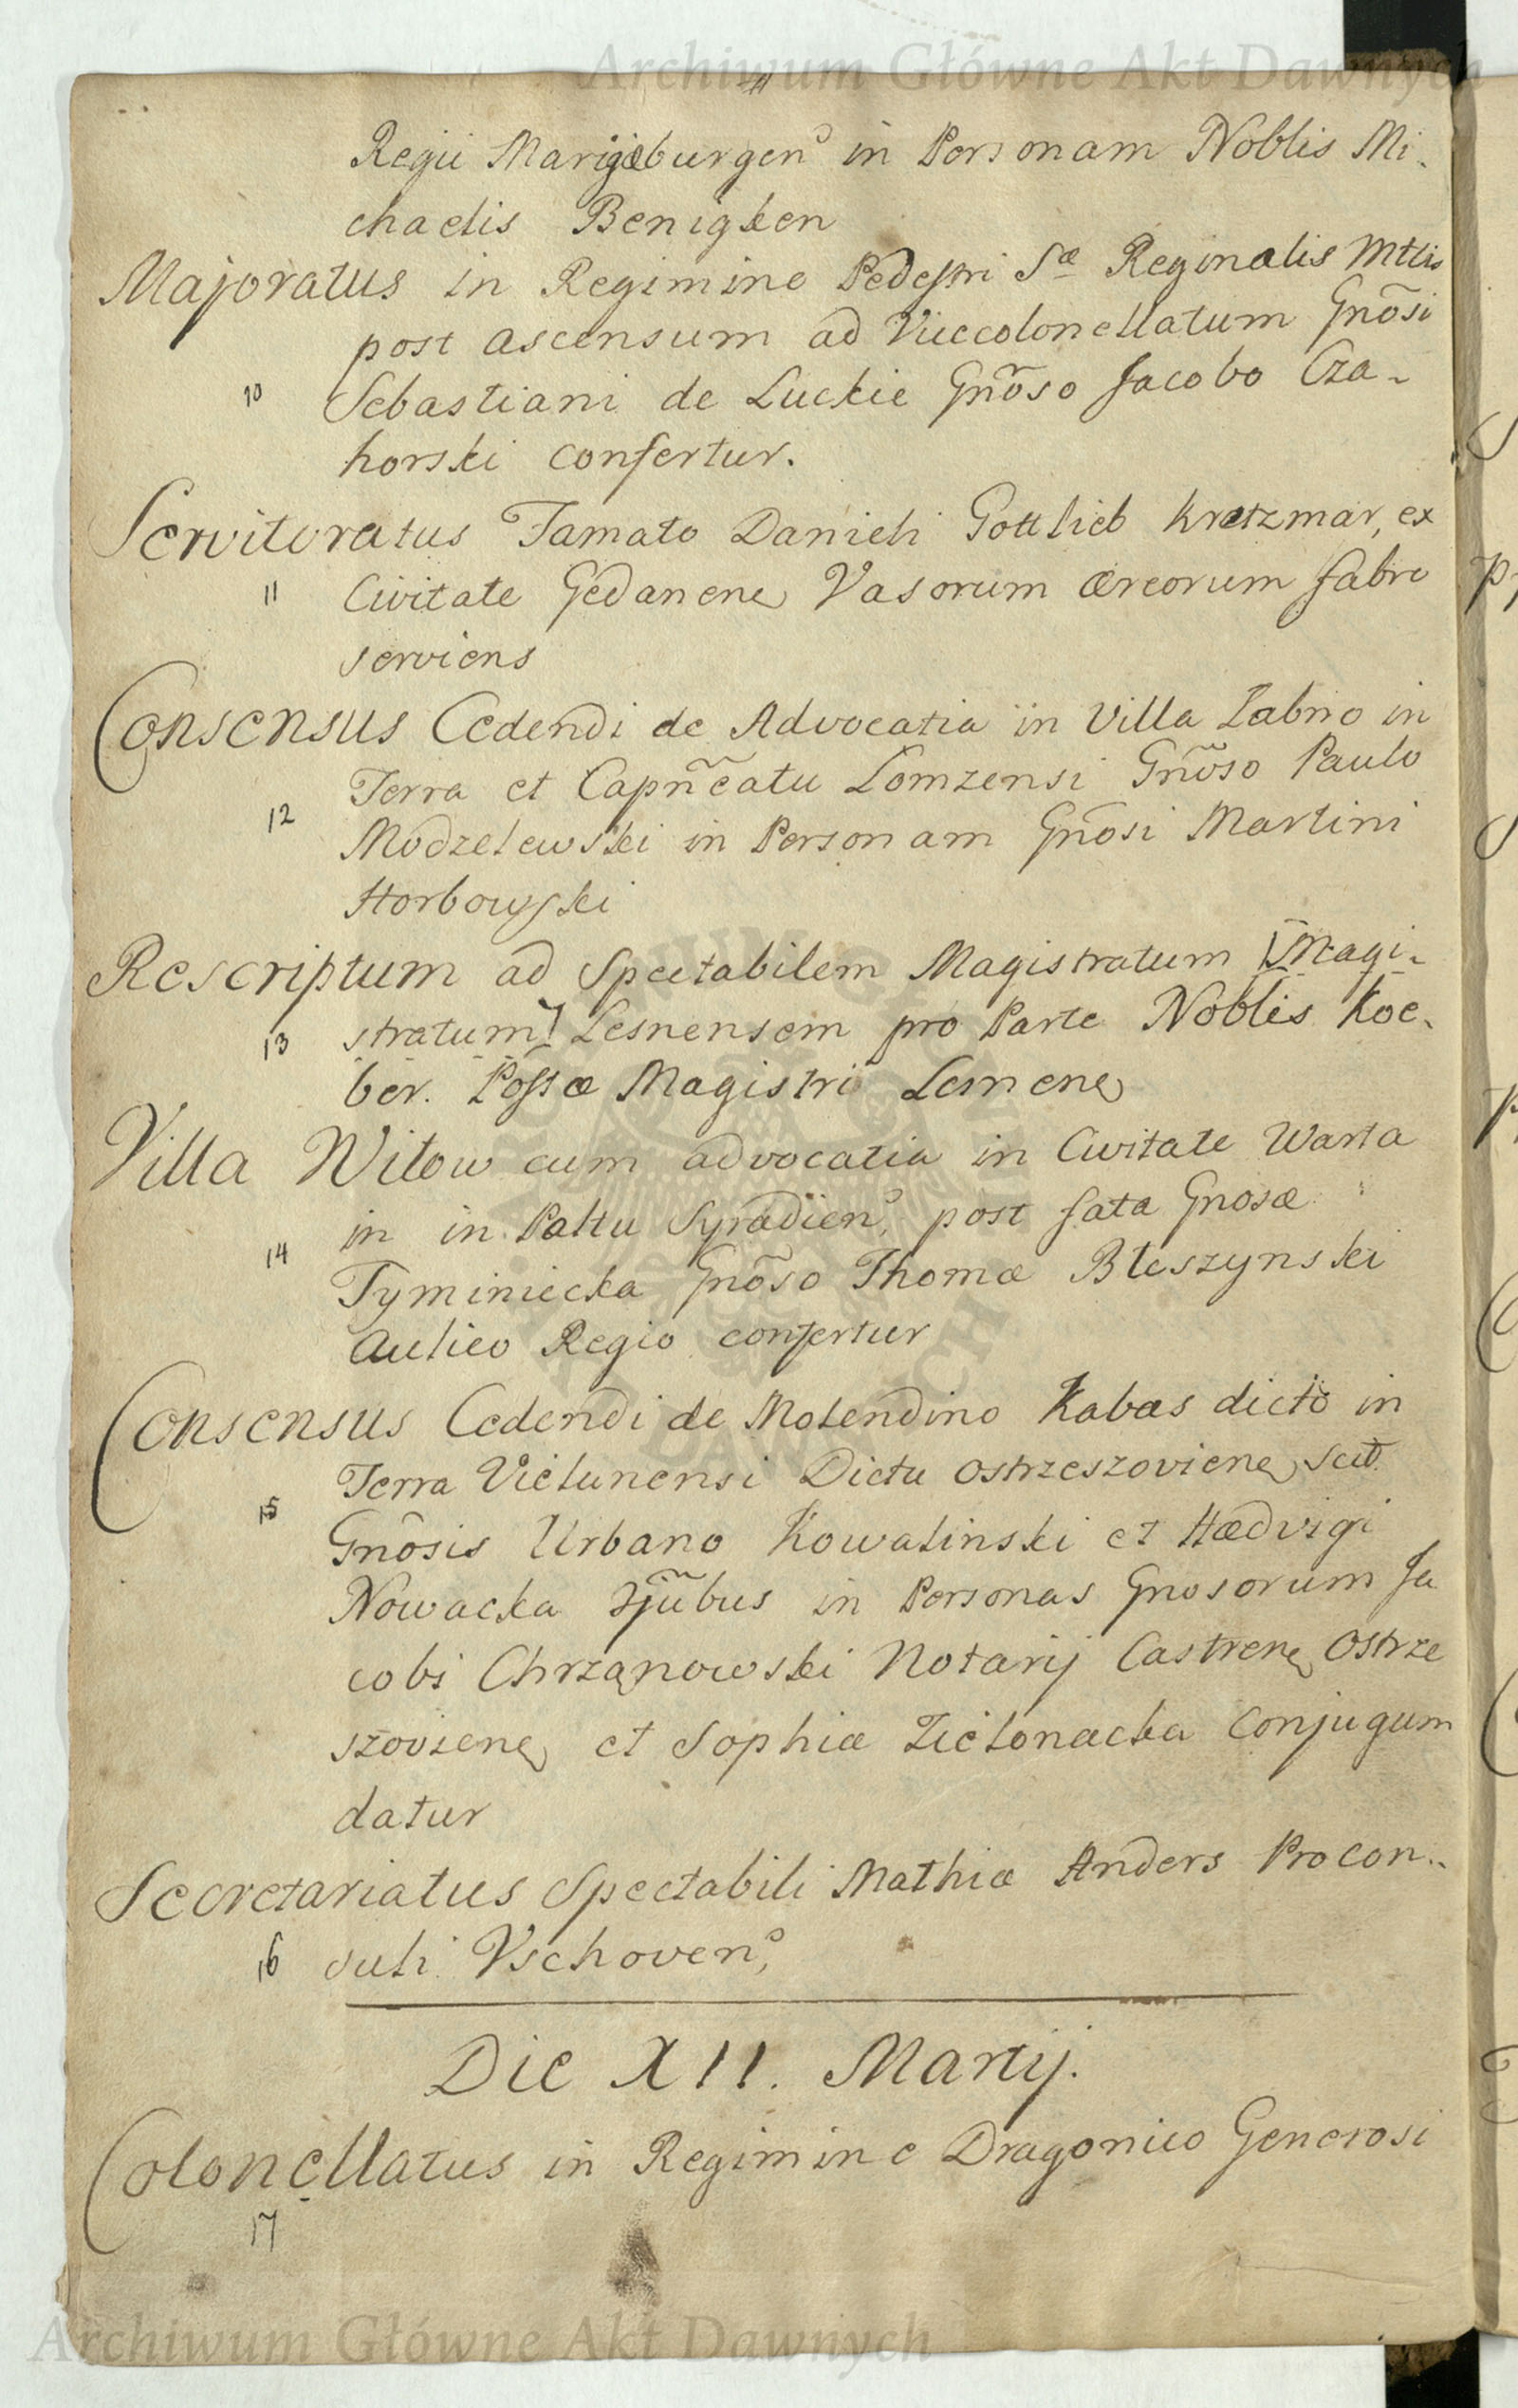 Archiwum Główne Akt Dawnych
Regii Mariæburgen in Personam Noblis Mi-
chaelis Benigken
Majoratus in Regimine Pedestri Sæ Reginalis Mttis
post ascensum ad Viccolonellatum Gnõsi
10 Sebastiani de Luckie Gnõso Jacobo Cza-
horski confertur.
Servitoratus Famato Danieli Gottlieb Kretzmar, ex
11 Civitate Gedanene Vasorum æreorum fabro
serviens
Consensus Cedendi de Advocatia in Villa Zabno in
Terra et Capñeatu Lomzensi Gnõso Paulo
12 Modzelewski in Personam Gnõsi Martini
Horbowski
Rescriptum ad Spectabilem Magistratum [Magi-
13 stratum] Lesnensem pro Parte Noblis Koe-
ber. Possæ Magistri Lemene
Villa Witow cum advocatia in Civitate Warta
in in Paltu Syradien, post fata Gnosæ
14 Tyminiecka Gnõso Thomæ Bleszynski
Aulico Regio confertur
Consensus Cedendi de Molendino Kabas dicto in
Terra Vielunensi Dictu Ostrzeszoviene scit
15 Gnõsis Urbano Kowalinski et Hædvigi
Nowacka Jjũbus in Personas Gnosorum Ja
cobi Chrzanowski Notarij Castrene Ostrze
szoviene et Sophiæ Zielonacka Conjugum
datur
Secretariatus Spectabili Mathiæ Anders Procon-
16 suli Vschoven,
Die XII. Martij.
Colonellatus in Regimine Dragonico Generosi
17
Archiwum Główne Akt Dawnych